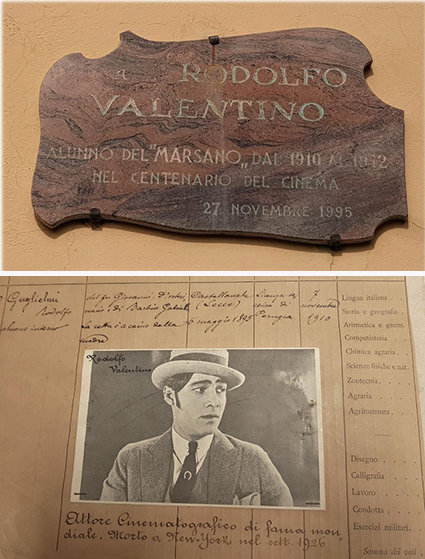 a RODOLFO
VALENTINO
ALUNNO DEL "MARSANO„ DAL 1910 AL 1912
NEL CENTENARIO DEL CINEMA
27 NOVEMBRE 1995
Guglielmi
Rodolfo
alunno interno
del fu Giovanni. D'ottori
e di Barbin Gabriella
La cotta a carico della
madre
Castellaneta
(Lecce)
6 maggio 1895
Licenza
di
Perugia
7
novembre
1910
Lingua italiana
Storia e geografia
Aritmetica e geom.
Computisteria
Chimica agraria
Scienze fisiche e nat.
Zootecnia
Agraria
Agrimensura
Disegno
Calligrafia
Lavoro
Condotta
Esercizi militari
Somma dei voti
Rodolfo
Valentino
Attore Cinematografico di fama mon=
diale. Morto a New-York nel sett. 1926